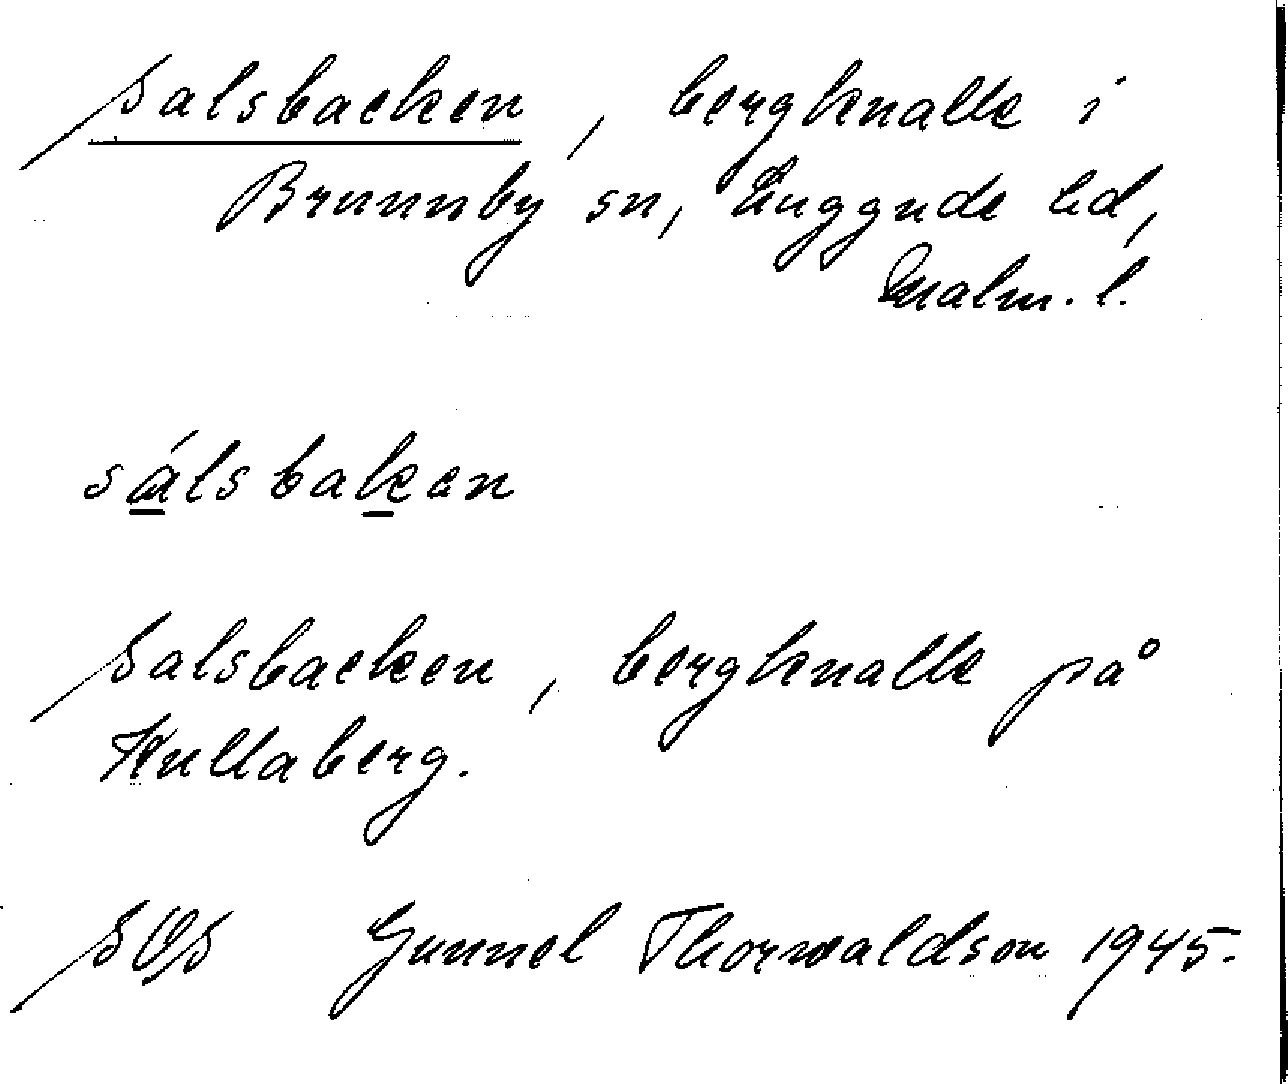 Salsbacken, bergknalle i
Brunnby sn, Luggude hd,
Malm. l.
sálsbaken
Salsbacken, bergknalle på
Kullaberg.
SOS Gunnel Thorwaldson 1945.